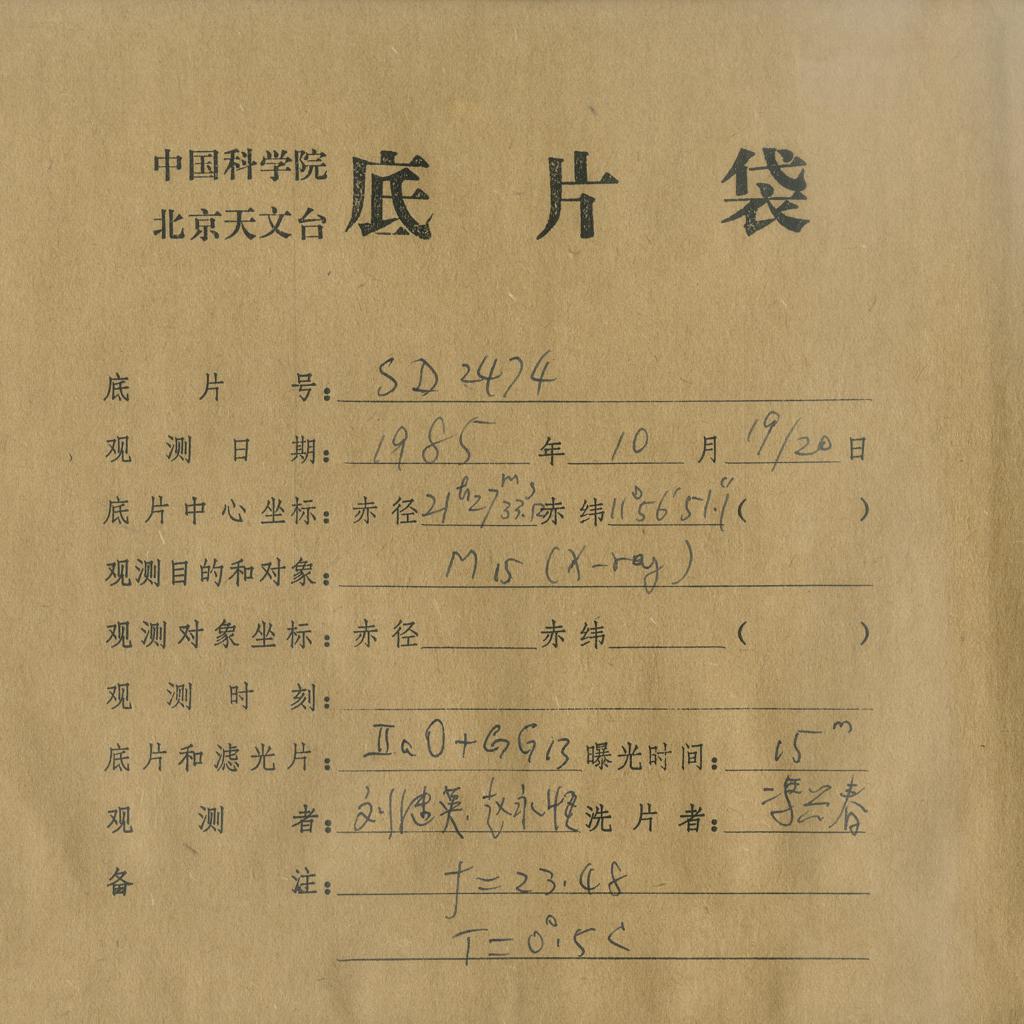 中国科学院
北京天文台
底片袋
底片号：SD 2474
观测日期：1985年10月19/20日
底片中心坐标：赤径21h27m33.12s赤纬11°56′51.1″（ ）
观测目的和对象：M15 (X-ray)
观测对象坐标：赤径 赤纬 （ ）
观测时刻：
底片和滤光片：ⅡaO+GG13 曝光时间：15m
观测者：刘 英. 赵永恒 洗片者： 兰春
备注：f=23.48
T=0°.5C